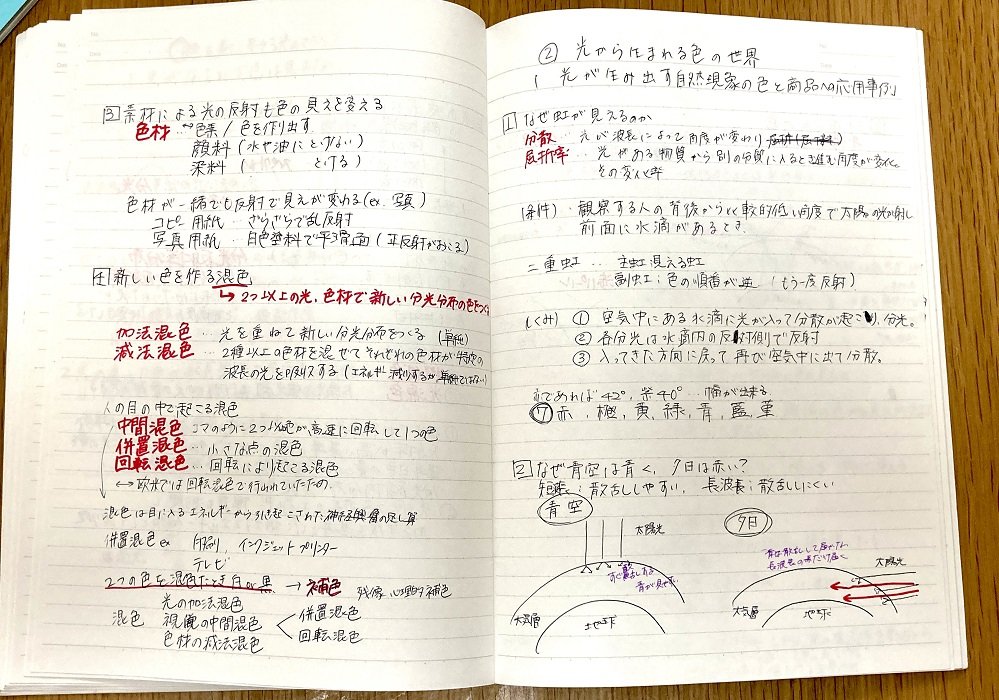 ③ 素材による光の反射も色の見えを変える
色材 … 色素 / 色を作り出す
顔料 (水や油にとけない)
染料 ( 〃 とける)
色材が一緒でも反射で見えが変わる (ex. 写真)
コピー用紙 … ざらざらで乱反射
写真用紙 … 白色塗料で平滑面 (正反射がおこる)
④ 新しい色を作る混色
↳ 2つ以上の光、色材で新しい分光分布の色をつくる
加法混色 … 光を重ねて新しい分光分布をつくる (単純)
減法混色 … 2種以上の色材を混ぜてそれぞれの色材が特定の
波長の光を吸収する (エネルギー減少するが単純ではない)
人の目の中で起こる混色
中間混色 コマのように2つ以上色が高速に回転して1つの色
併置混色 … 小さな点の混色
回転混色 … 回転により起こる混色
↔ 欧米では回転混色で行われていたため。
混色は目に入るエネルギーから引き起こされた神経興奮の足し算
併置混色 ex 印刷、インクジェットプリンター
テレビ
2つの色を混色したとき白 or 黒 → 補色 残像 心理的補色
混色
光の加法混色
視覚の中間混色 < 併置混色
回転混色
色材の減法混色
② 光から生まれる色の世界
1 光が生み出す自然現象の色と商品への応用事例
① なぜ虹が見えるのか
分散 … 光が波長によって角度が変わり
屈折率 … 光がある物質から別の物質に入るとき進む角度が変化。
その変化率
条件) ・観察する人の背後から比較的低い角度で太陽の光が射し
前面に水滴があるとき。
二重虹 … 主虹 見える虹
副虹 : 色の順番が逆 (もう一度反射)
しくみ) ① 空気中にある水滴に光が入って分散が起こり、分光。
② 各分光は水滴内の反対側で反射
③ 入ってきた方向に戻って再び空気中に出て分散。
赤であれば42°、紫40° … 幅が出来る
⑦ 赤、橙、黄、緑、青、藍、菫
② なぜ青空は青く、夕日は赤い?
短波長 : 散乱しやすい、長波長 : 散乱しにくい
青空
太陽光
すぐ散乱する
青が見やすい
大気層
地球
夕日
青は散乱して届かない
長波長の赤だけ届く
太陽光
大気層
地球